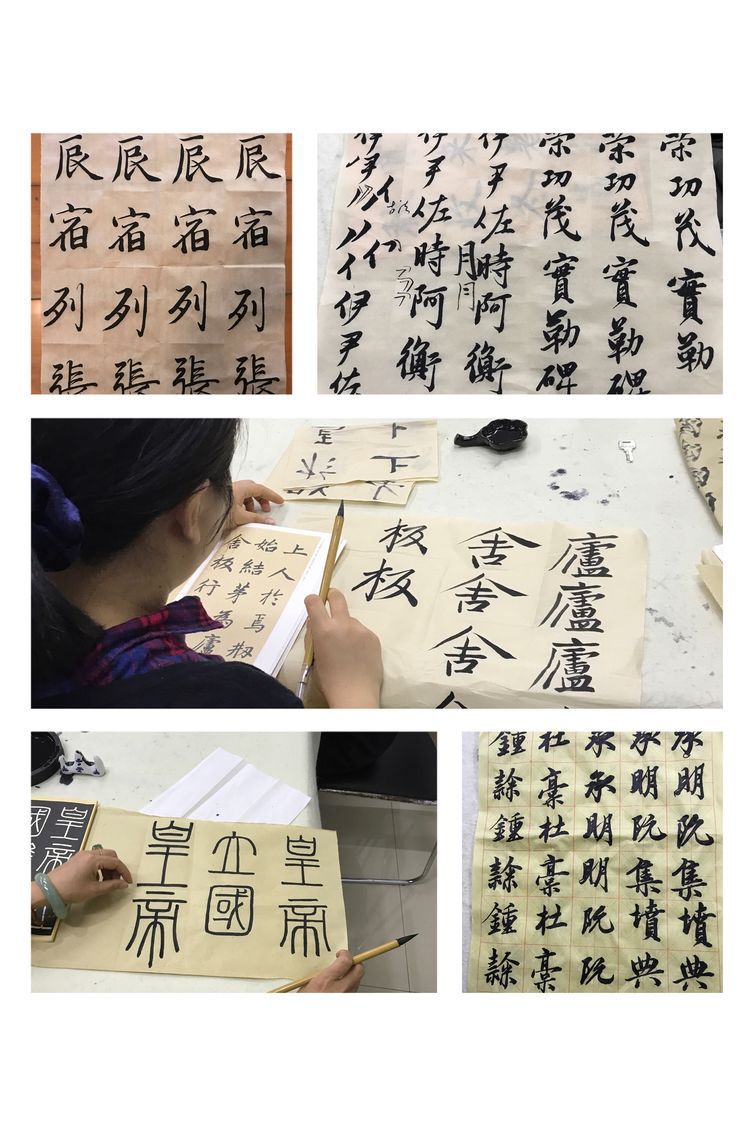 辰宿列張
辰宿列張
辰宿列張
辰宿列張
策功茂實勒
策功茂實勒碑
策功茂實勒碑
伊尹佐時阿衡
月月
伊尹佐時阿衡
伊尹
伊尹佐
上人於焉剙
始結茅為廬
舍板行
廬廬廬
舍舍舍
板板
皇帝
國
皇帝
立國
皇帝
承明既集墳典
承明既集墳典
承承明明既既
杜稾杜稾杜稾
鍾隸鍾隸鍾隸